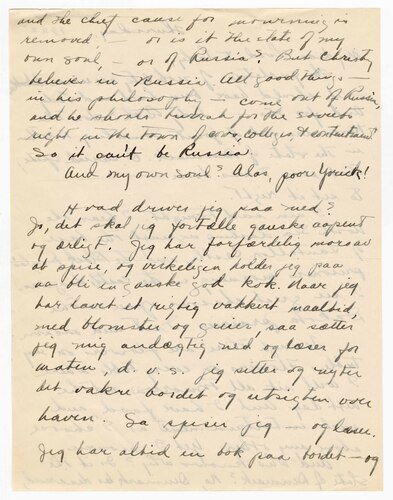 and the chief cause for mourning is
removed; or is it the state of my
own soul, — or of Russia? But Christy
believes in Russia. All good things —
in his philosophy — come out of Russia,
and he shouts hurrah for the soviets
right in the town of cows, colleges, & contentment.
So it can't be Russia.
And my own soul? Alas, poor Yorick!
Hvad driver jeg paa med?
Jo, det skal jeg fortælle ganske aapent
og ærligt. Jeg har forfærdelig moro av
at spise, og virkeligen holder jeg paa
aa bli en ganske god kok. Naar jeg
har lavet et rigtig vakkert maaltid,
med blomster og greier, saa sætter
jeg mig andægtig ned og læser for
maten, d. v. s. jeg sitter og nyter
det vakre bordet og utsigten over
haven. Saa spiser jeg — og læser.
Jeg har altid en bok paa bordet — og